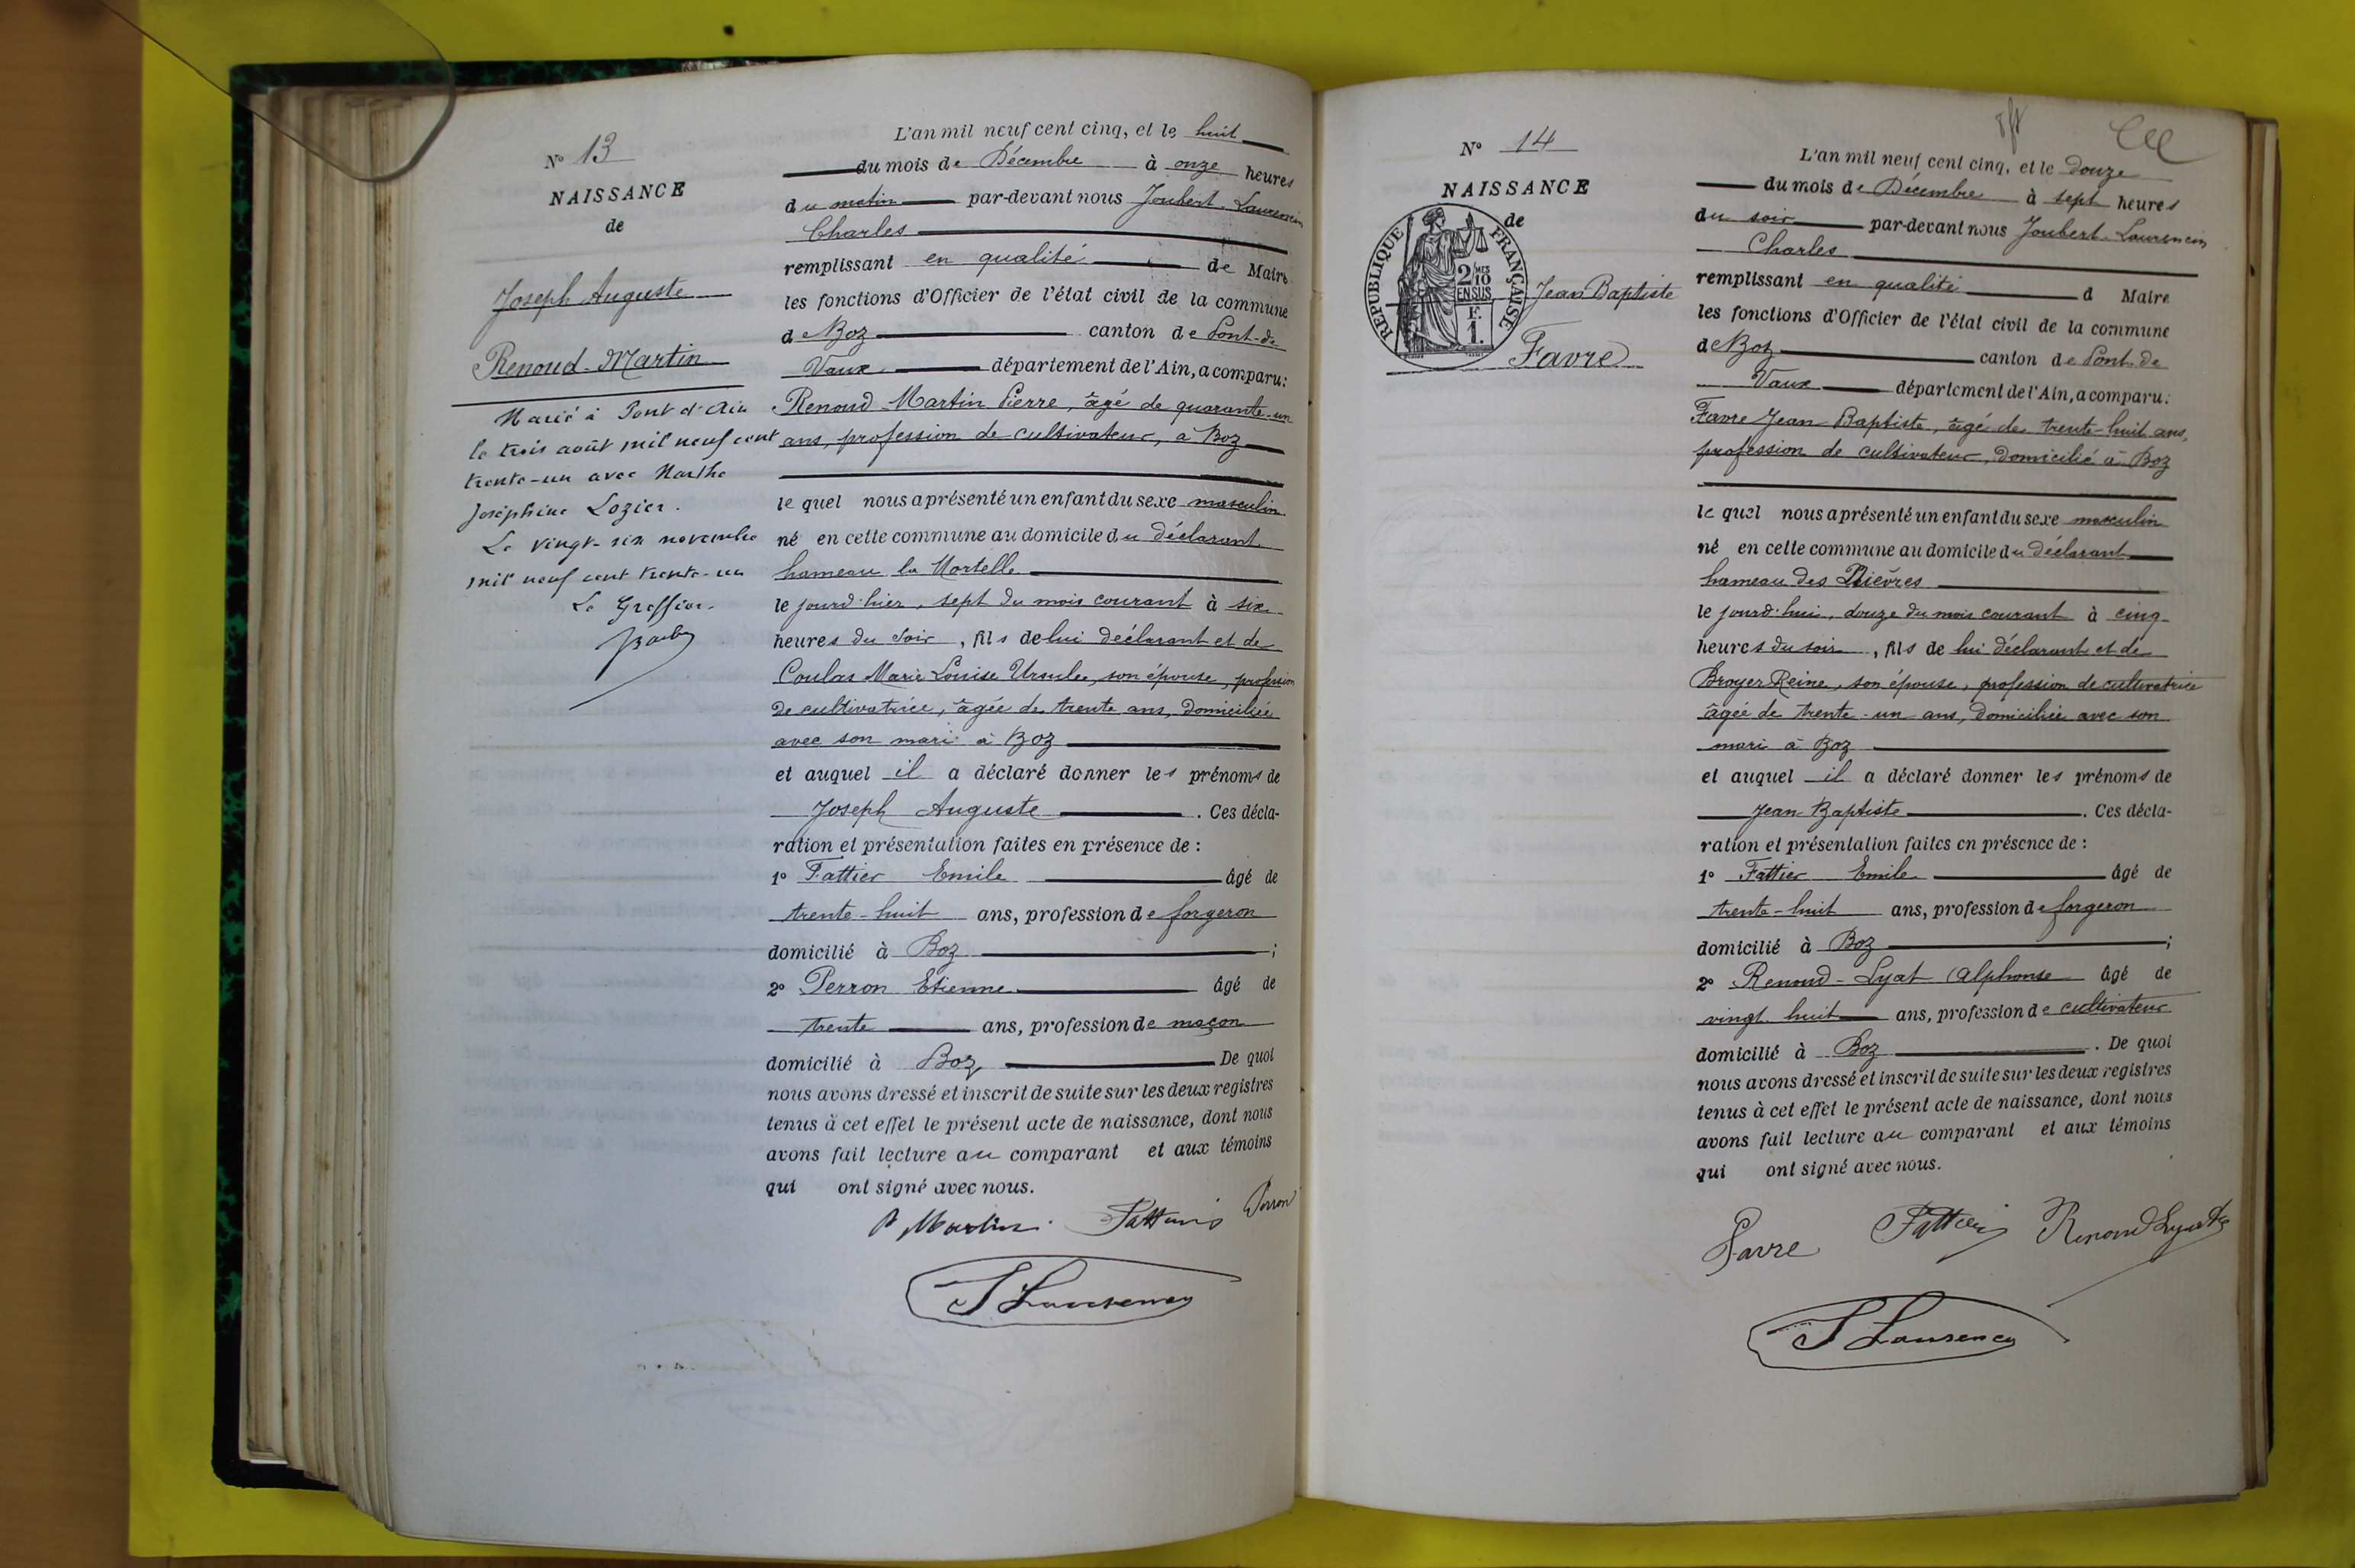 N° 13
NAISSANCE
de
Joseph Auguste
Renoud-Martin
Marié à Pont d'Ain
le trois août mil neuf cent
trente-un avec Marthe
Joséphine Lozier.
Le vingt-six novembre
mil neuf cent trente-un
Le Greffier.
L'an mil neuf cent cinq, et le huit
du mois de Décembre à onze heures
du matin par-devant nous Joubert-Laurencin
Charles
remplissant en qualité de Maire
les fonctions d'Officier de l'état civil de la commune
de Boz canton de Pont-de
Vaux département de l'Ain, a comparu:
Renoud-Martin Pierre, âgé de quarante-un
ans, profession de cultivateur, à Boz
le quel nous a présenté un enfant du sexe masculin
né en cette commune au domicile du déclarant
hameau la Mortelle
le jourd'hier, sept du mois courant à six
heures du soir, fils de lui déclarant et de
Coulas Marie Louise Ursule, son épouse, profession
de cultivatrice, âgée de trente ans, domiciliée
avec son mari à Boz
et auquel il a déclaré donner les prénoms de
Joseph Auguste. Ces décla-
ration et présentation faites en présence de :
1° Fattier Emile âgé de
trente-huit ans, profession de forgeron
domicilié à Boz ;
2° Perron Etienne âgé de
trente ans, profession de maçon
domicilié à Boz De quoi
nous avons dressé et inscrit de suite sur les deux registres
tenus à cet effet le présent acte de naissance, dont nous
avons fait lecture au comparant et aux témoins
qui ont signé avec nous.
P Martin. Fattier Perron
J Laurencin
N° 14
NAISSANCE
de
RÉPUBLIQUE FRANÇAISE
2/10 MES
EN SUS
F.
1.
Jean Baptiste
Favre
L'an mil neuf cent cinq, et le douze
du mois de Décembre à sept heures
du soir par-devant nous Joubert-Laurencin
Charles
remplissant en qualité d Maire
les fonctions d'Officier de l'état civil de la commune
de Boz canton de Pont-de
Vaux département de l'Ain, a comparu:
Favre Jean-Baptiste, âgé de trente-huit ans,
profession de cultivateur, domicilié à Boz
le quel nous a présenté un enfant du sexe masculin
né en cette commune au domicile du déclarant
hameau des
le jourd'hui, douze du mois courant à cinq
heures du soir, fils de lui déclarant et de
Broyer Reine, son épouse, profession de cultivatrice
âgée de trente-un ans, domiciliée avec son
mari à Boz
et auquel il a déclaré donner les prénoms de
Jean-Baptiste. Ces décla-
ration et présentation faites en présence de :
1° Fattier Emile âgé de
trente-huit ans, profession de forgeron
domicilié à Boz ;
2° Renoud-Lyat Alphonse âgé de
vingt huit ans, profession de cultivateur
domicilié à Boz. De quoi
nous avons dressé et inscrit de suite sur les deux registres
tenus à cet effet le présent acte de naissance, dont nous
avons fait lecture au comparant et aux témoins
qui ont signé avec nous.
Favre Fattier Renoud Lyat
J Laurencin